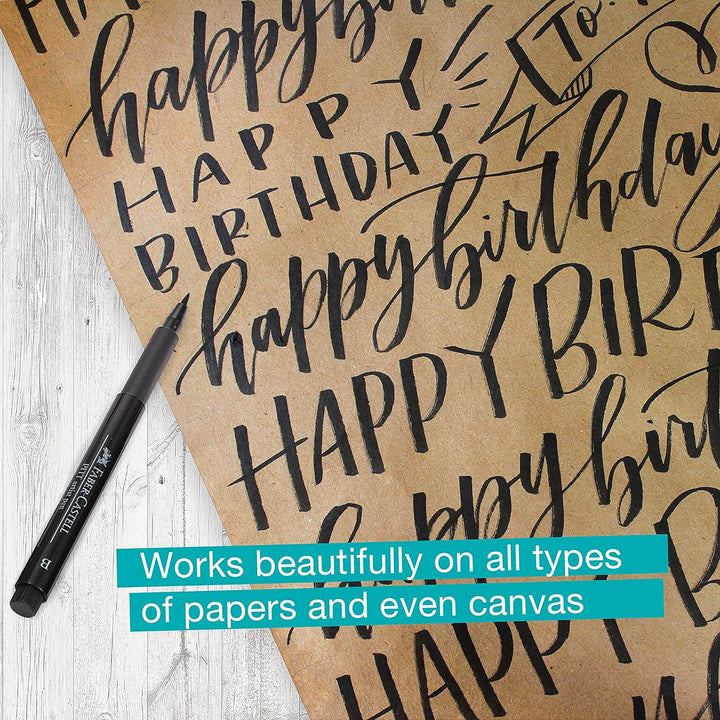 happy
HAPPY
BIRTHDAY
To:
happy birthday
HAPPY BIR
happy birt
HAPPY
happy
HAPPY
FABER-CASTELL
PITT artist pen
B
Works beautifully on all types
of papers and even canvas